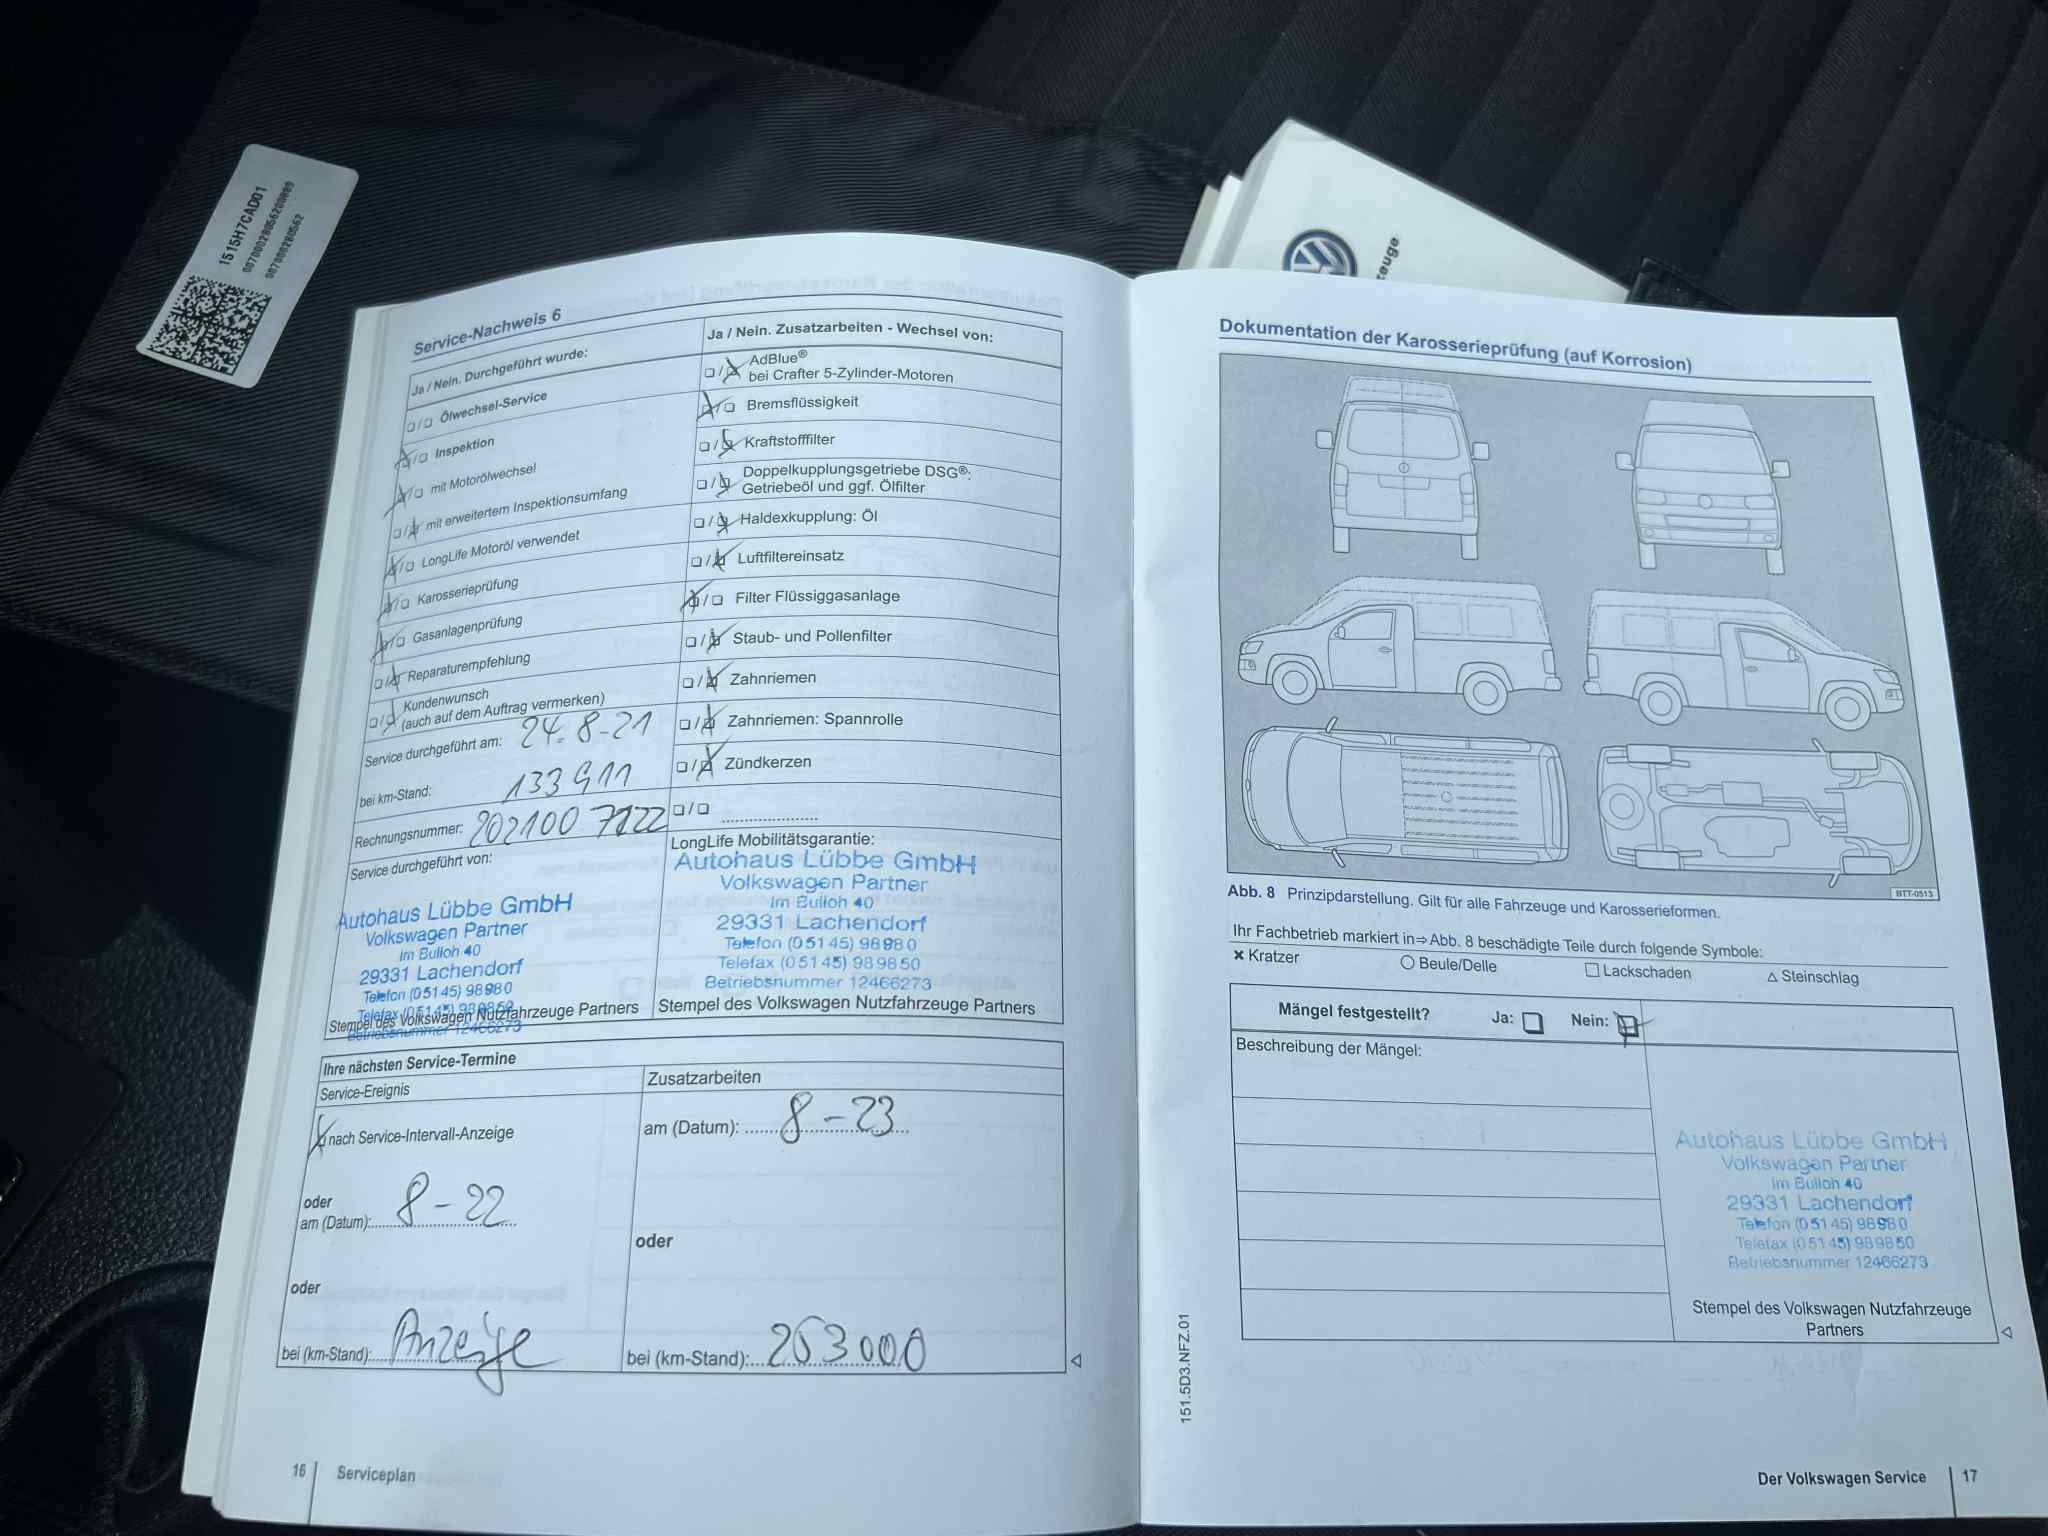 1515H7CAD01
007000280562
zeuge
Service-Nachweis 6
Ja / Nein. Durchgeführt wurde:
❏/❏ Ölwechsel-Service
❏/❏ Inspektion
❏/❏ mit Motorölwechsel
❏/❏ mit erweitertem Inspektionsumfang
❏/❏ LongLife Motoröl verwendet
❏/❏ Karosserieprüfung
❏/❏ Gasanlagenprüfung
❏/❏ Reparaturempfehlung
❏/❏ Kundenwunsch
(auch auf dem Auftrag vermerken)
Service durchgeführt am: 24.8-21
bei km-Stand: 133911
Rechnungsnummer: 202100 7122
Service durchgeführt von:
Autohaus Lübbe GmbH
Volkswagen Partner
Im Bulloh 40
29331 Lachendorf
Telefon (05145) 98980
Telefax (05145) 989850
Betriebsnummer 12466273
Stempel des Volkswagen Nutzfahrzeuge Partners
Ja / Nein. Zusatzarbeiten - Wechsel von:
❏/❏ AdBlue®
bei Crafter 5-Zylinder-Motoren
❏/❏ Bremsflüssigkeit
❏/❏ Kraftstofffilter
❏/❏ Doppelkupplungsgetriebe DSG®:
Getriebeöl und ggf. Ölfilter
❏/❏ Haldexkupplung: Öl
❏/❏ Luftfiltereinsatz
❏/❏ Filter Flüssiggasanlage
❏/❏ Staub- und Pollenfilter
❏/❏ Zahnriemen
❏/❏ Zahnriemen: Spannrolle
❏/❏ Zündkerzen
❏/❏ ....................
LongLife Mobilitätsgarantie:
Autohaus Lübbe GmbH
Volkswagen Partner
Im Bulloh 40
29331 Lachendorf
Telefon (05145) 98980
Telefax (05145) 989850
Betriebsnummer 12466273
Stempel des Volkswagen Nutzfahrzeuge Partners
Ihre nächsten Service-Termine
Service-Ereignis
nach Service-Intervall-Anzeige
oder
am (Datum): 8-22
oder
bei (km-Stand): Anzeige
Zusatzarbeiten
am (Datum): 8-23
oder
bei (km-Stand): 253000
16 Serviceplan
Dokumentation der Karosserieprüfung (auf Korrosion)
BTT-0513
Abb. 8 Prinzipdarstellung. Gilt für alle Fahrzeuge und Karosserieformen.
Ihr Fachbetrieb markiert in⇒Abb. 8 beschädigte Teile durch folgende Symbole:
✖ Kratzer ○ Beule/Delle □ Lackschaden △ Steinschlag
Mängel festgestellt? Ja: ❏ Nein: ❏
Beschreibung der Mängel:
Autohaus Lübbe GmbH
Volkswagen Partner
Im Bulloh 40
29331 Lachendorf
Telefon (05145) 98980
Telefax (05145) 989850
Betriebsnummer 12466273
Stempel des Volkswagen Nutzfahrzeuge
Partners
151.5D3.NFZ.01
Der Volkswagen Service 17